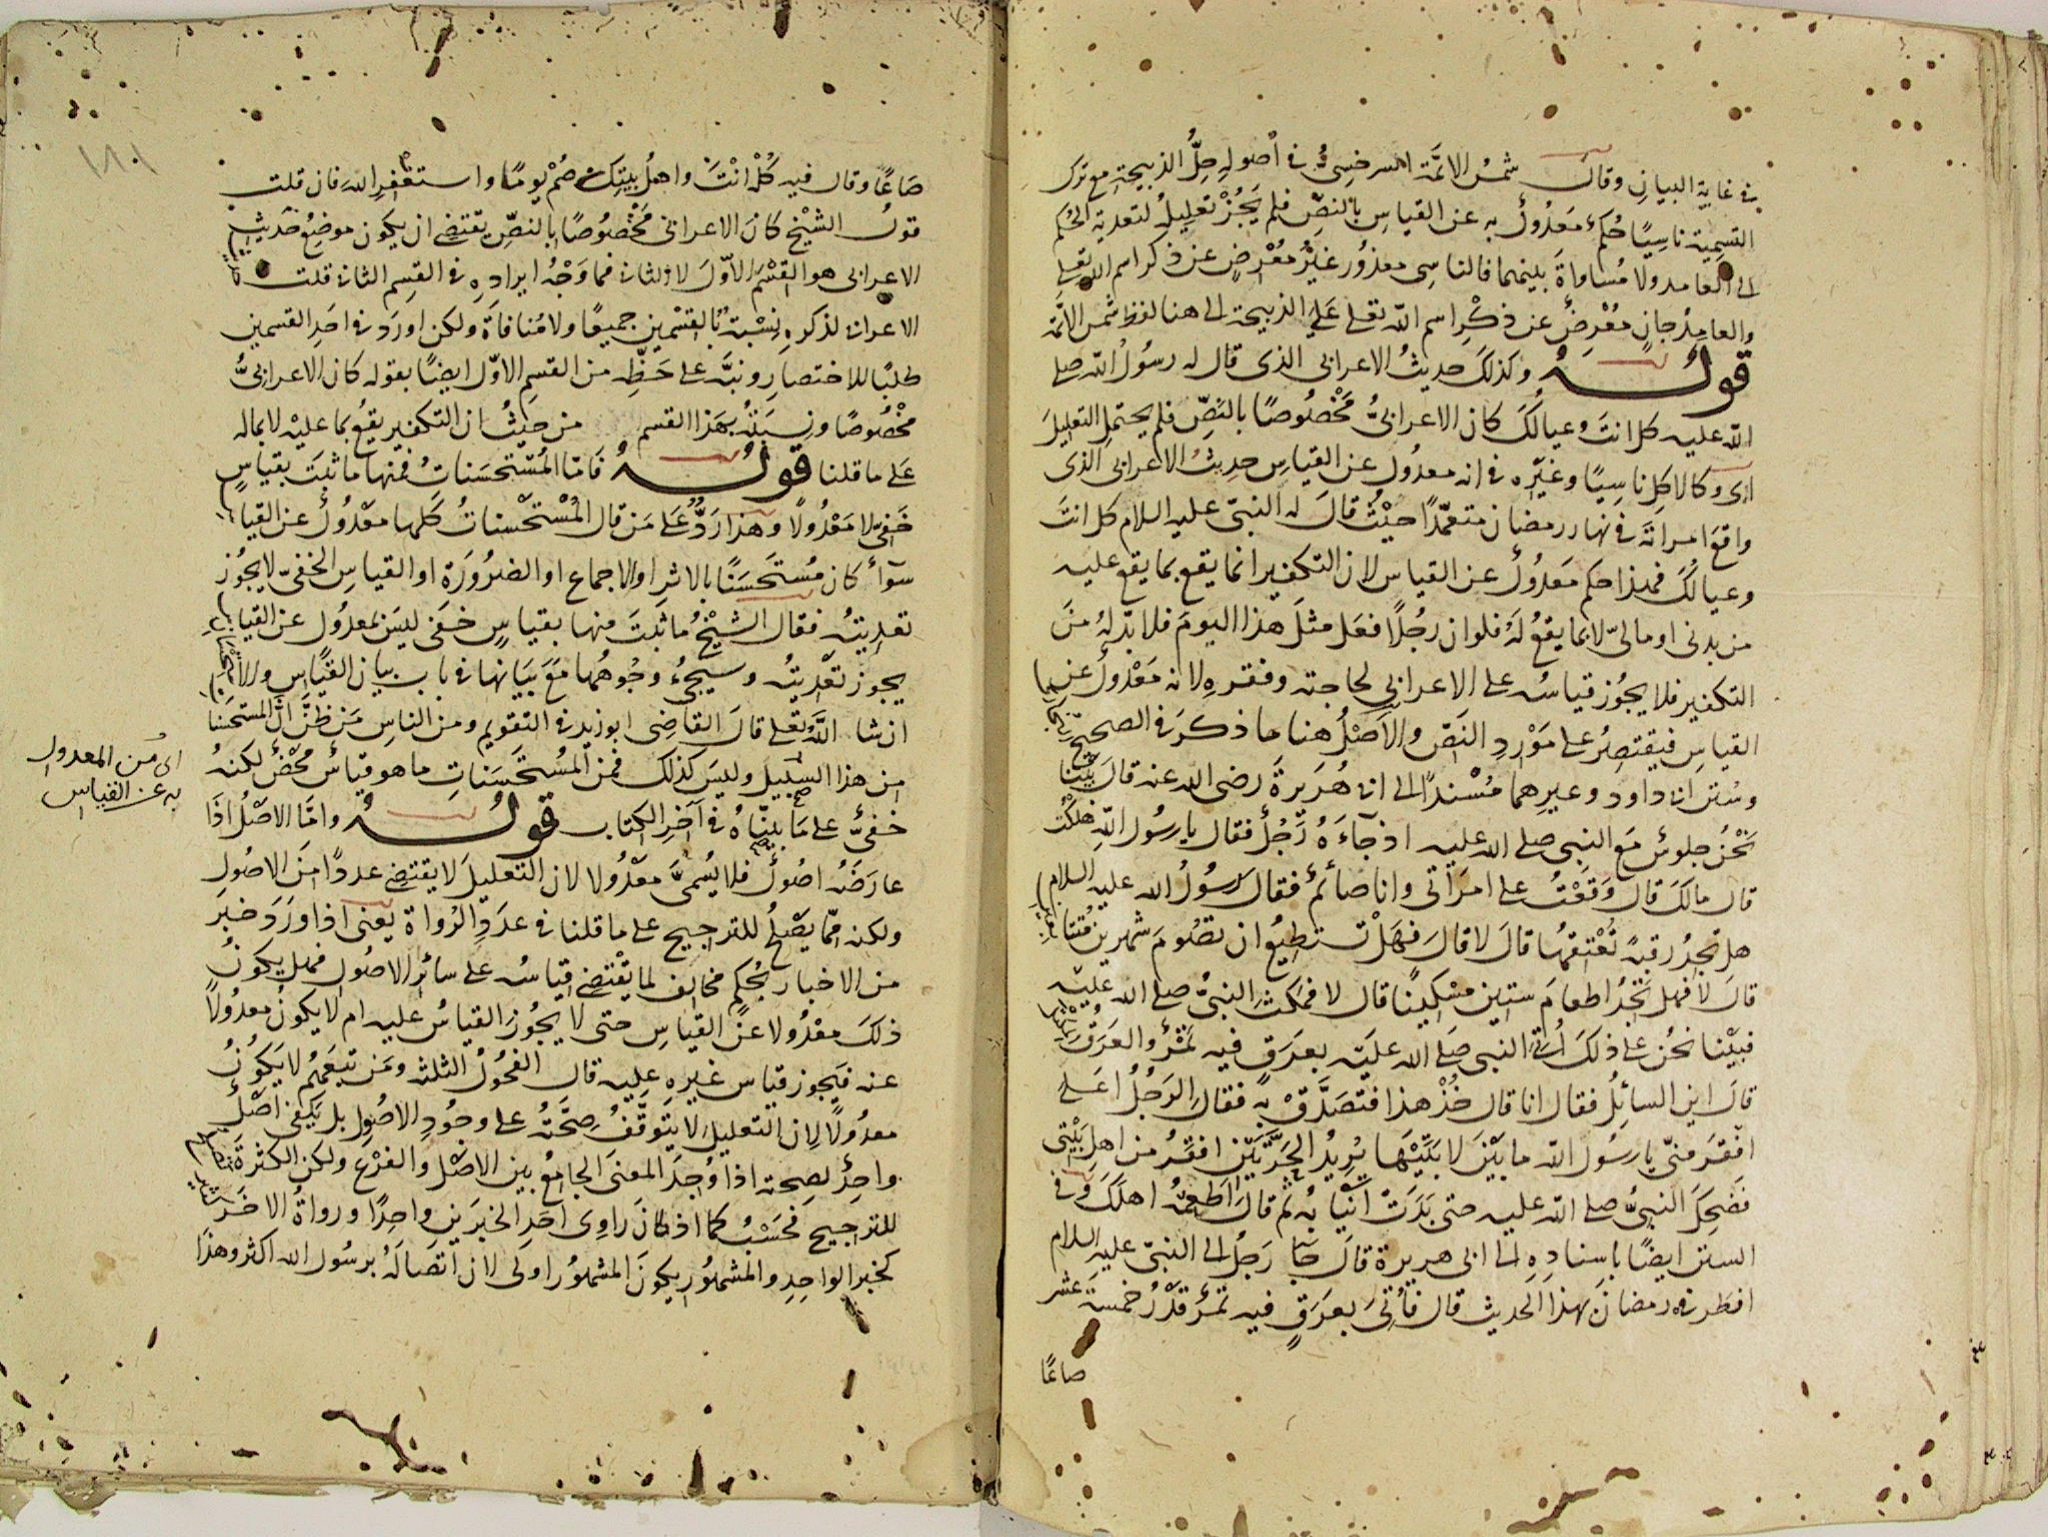 في غاية البيان وقال شمس الائمة السرخسي في اصوله حِلُّ الذبيحة مع ترك
التسمية ناسيًا حُكمٌ معدولٌ به عن القياس بالنصِّ فلم يَجُزْ تعليلُه لتعدية الحكم
الى العامد ولا مُساواةَ بينهما فالناسي معذورٌ غيرُ مُعْرِضٍ عن ذكر اسم الله تعلى
والعامِدُ جانٍ مُعْرِضٌ عن ذِكْرِ اسم الله تعلى عَلى الذبيحة الى هنا لفظ شمس الائمَّة
قولُـــهُ وكذلكَ حديثُ الاعرابي الذي قال له رسُولُ الله صلى
الله عليه كل انتَ وعيالكَ كان الاعرابيُّ مَخْصُوصًا بالنَصِّ فلم يحتمل التعليلَ
اى وكالاكِلِ ناسِيًا وغيّره في انه معدُول عن القياسِ حديثُ الاعرابي الذي
واقعَ امراتَهُ في نهار رمضان متعمّدًا حيْثُ قالَ له النبي عليه السلام كل انتَ
وعيالُكَ فهذا حكم مَعدُولٌ عن القياس لان التكفير انما يقع بما يقع عليه
من بدني او ماليّ لا بما يقعُ لَهُ فلو ان رجُلًا فعل مثلَ هذا اليومَ فلا بدّ لهُ منَ
التكفير فلا يجُوز قياسُه على الاعرابي لحاجته وفقرهِ لانه مَعْدُولٌ عن
القياسِ فيقتصِرُ على مَوْرِدِ النَصِّ والاَصْلُ هنا ما ذكرَ في الصحيح
وسُنن ابي داود وغيرهما مُسْندًا الى ابي هُرَيرةَ رضى الله عنه قالَ بَيْنا
نَحْنُ جلوسٌ مَعَ النبي صلى الله عليه اذ جآءَهُ رَجُلٌ فقال يا رسُول اللهِ هلكتُ
قال مالكَ قال وَقعْتُ على امرَأتي وانا صائمٌ فقال رسُولُ الله عليه السلام
هل تجدُ رقبةً تُعْتقهُا قالَ لا قالَ فهَلْ تستطيعُ ان تصُومَ شهرين مُتتابعين
قالَ لا فهل تجدُ اطعامَ ستين مسْكينًا قال لا فمكث النبيُّ صلى الله عليه
فبيْنا نحْنُ على ذلكَ اُتي النبي صَلى الله عليه بعرَقٍ فيه تمْرٌ والعَرَقُ المكتل
قالَ اين السائِلُ فقال انا قال خُذْ هذا فتصَدَّقْ بهِ فقال الرَجُلُ اعَلى
اَفقرَ منّي يا رسُول الله ما بيْنَ لابَتَيْها يُريدُ الحَرَّتيْنِ افقرُ من اهل بَيْتي
فضحِكَ النبيُّ صلى الله عليه حتى بَدَتْ اَنْيابُهُ ثم قالَ اَطعِمْهُ اهلكَ وفي
السنن ايضًا باسنادِهِ الى ابي هريرة قالَ جآ رَجُلٌ الى النبيّ عليه السلام
افطر في رمضانَ بهذا الحديث قال فاُتِيَ بعرَقٍ فيه تمرٌ قدْرُ خمسةَ عشر
صاعًا
١٨١
صَاعًا وقال فيه كُلْهُ انْتَ واهلُ بيتِكَ وصُمْ يومًا واستغْفِرِ اللهَ فان قلت
قولُ الشيْخ كانَ الاعرابي مَخْصُوصًا بالنصِّ يقتضى ان يكون موضِعُ حديثِ
الاعرابي هو القِسْم الاوّلَ لا الثاني فما وَجْهُ ايرادِهِ في القسِم الثاني قلت
الاعرابي لذكرهِ نِسْبة بالقسْمين جميعًا ولا مُنافاةَ ولكن اورَدَ في احَدِ القسمين
طلبًا للاختصارِ ونبَّه على حَظِّه من القسمِ الاوّل ايضًا بقوله كان الاعرابيُّ
مخْصُوصًا ونِسبَتُه بهذا القسم من حيثُ ان التكفير يقعُ بما عليْه لا بماله
عَلى ما قلنا قولُـــهُ فَامّا المُسْتحسَناتُ فمنها ما ثبَتَ بقياسٍ
خَفيّ لا مَعْدُولًا وهذا رَدٌّ عَلى مَن قال المُسْتحْسناتُ كلها معْدُولٌ عن القياس
سوآءٌ كان مُستحسَنًا بالاثرِ او الاجماع او الضرُورَة او القياسِ الخفيّ لا يجُوز
تعديتُه فقال الشيْخُ ما ثبتَ منها بقياسٍ خفيّ ليسَ بمعدُول عن القياس
يجوز تعْديتُه وسيجيءُ وجُوهُها مَعَ بيَانها في باب بيان القياس والاستحسان
ان شا اللهُ تعلى قالَ القاضي ابو زيد في التقويم ومن الناسِ مَن ظنَّ انَّ المستحسَنات
من هذا السّبيل وليسَ كذلك فمن المُسْتحَسَناتِ ما هو قياسٌ محْضٌ لكنهُ
خفيٌّ على مَا بيّنّاهُ في آخر الكتاب قولُـــهُ وامَّا الاصْلُ اذَا
عارَضَهُ اصُولٌ فلا يُسمَّى معْدُولا لان التعليلَ لا يقتضى عددًا منَ الاصُولِ
ولكنه ممّا يصْلحُ للترجيح على ما قلنا في عدَدِ الرُواة يَعْنى اذا وَرَدَ خبَر
من الاخبار بحُكمٍ مخالِفٍ لما يقْتضى قياسُه على سائر الاصُول فهل يكونُ
ذلكَ معْدُولا عَنِ القياسِ حتى لا يجُوزَ القياسُ عليه ام لا يكونُ معدُولًا
عنه فيَجوز قياس غيرِهِ عليه قال الفحُولُ الثلثة ومَن تبعَهُم لا يَكُونُ
معدُولًا لان التعليل لا يتوقَّفُ صِحَّتُه على وجُودِ الاصُولِ بل يكفي اصْلٌ
واحِدٌ لصحته اذا وُجدَ المعنى الجامعُ بين الاصْل والفرْعِ ولكن الكثرةَ
للترجيح فحَسْبُ كما اذا كانَ راوِى اَحَدِ الخبرَينِ واحِدًا ورواةُ الاخَر
كخبر الواحِدِ والمشهُورِ يكونَ المشهُورُ اولى لان اتصَالَهُ برسُول الله اكثر وهذا
اى من المعدول
به عن القياس